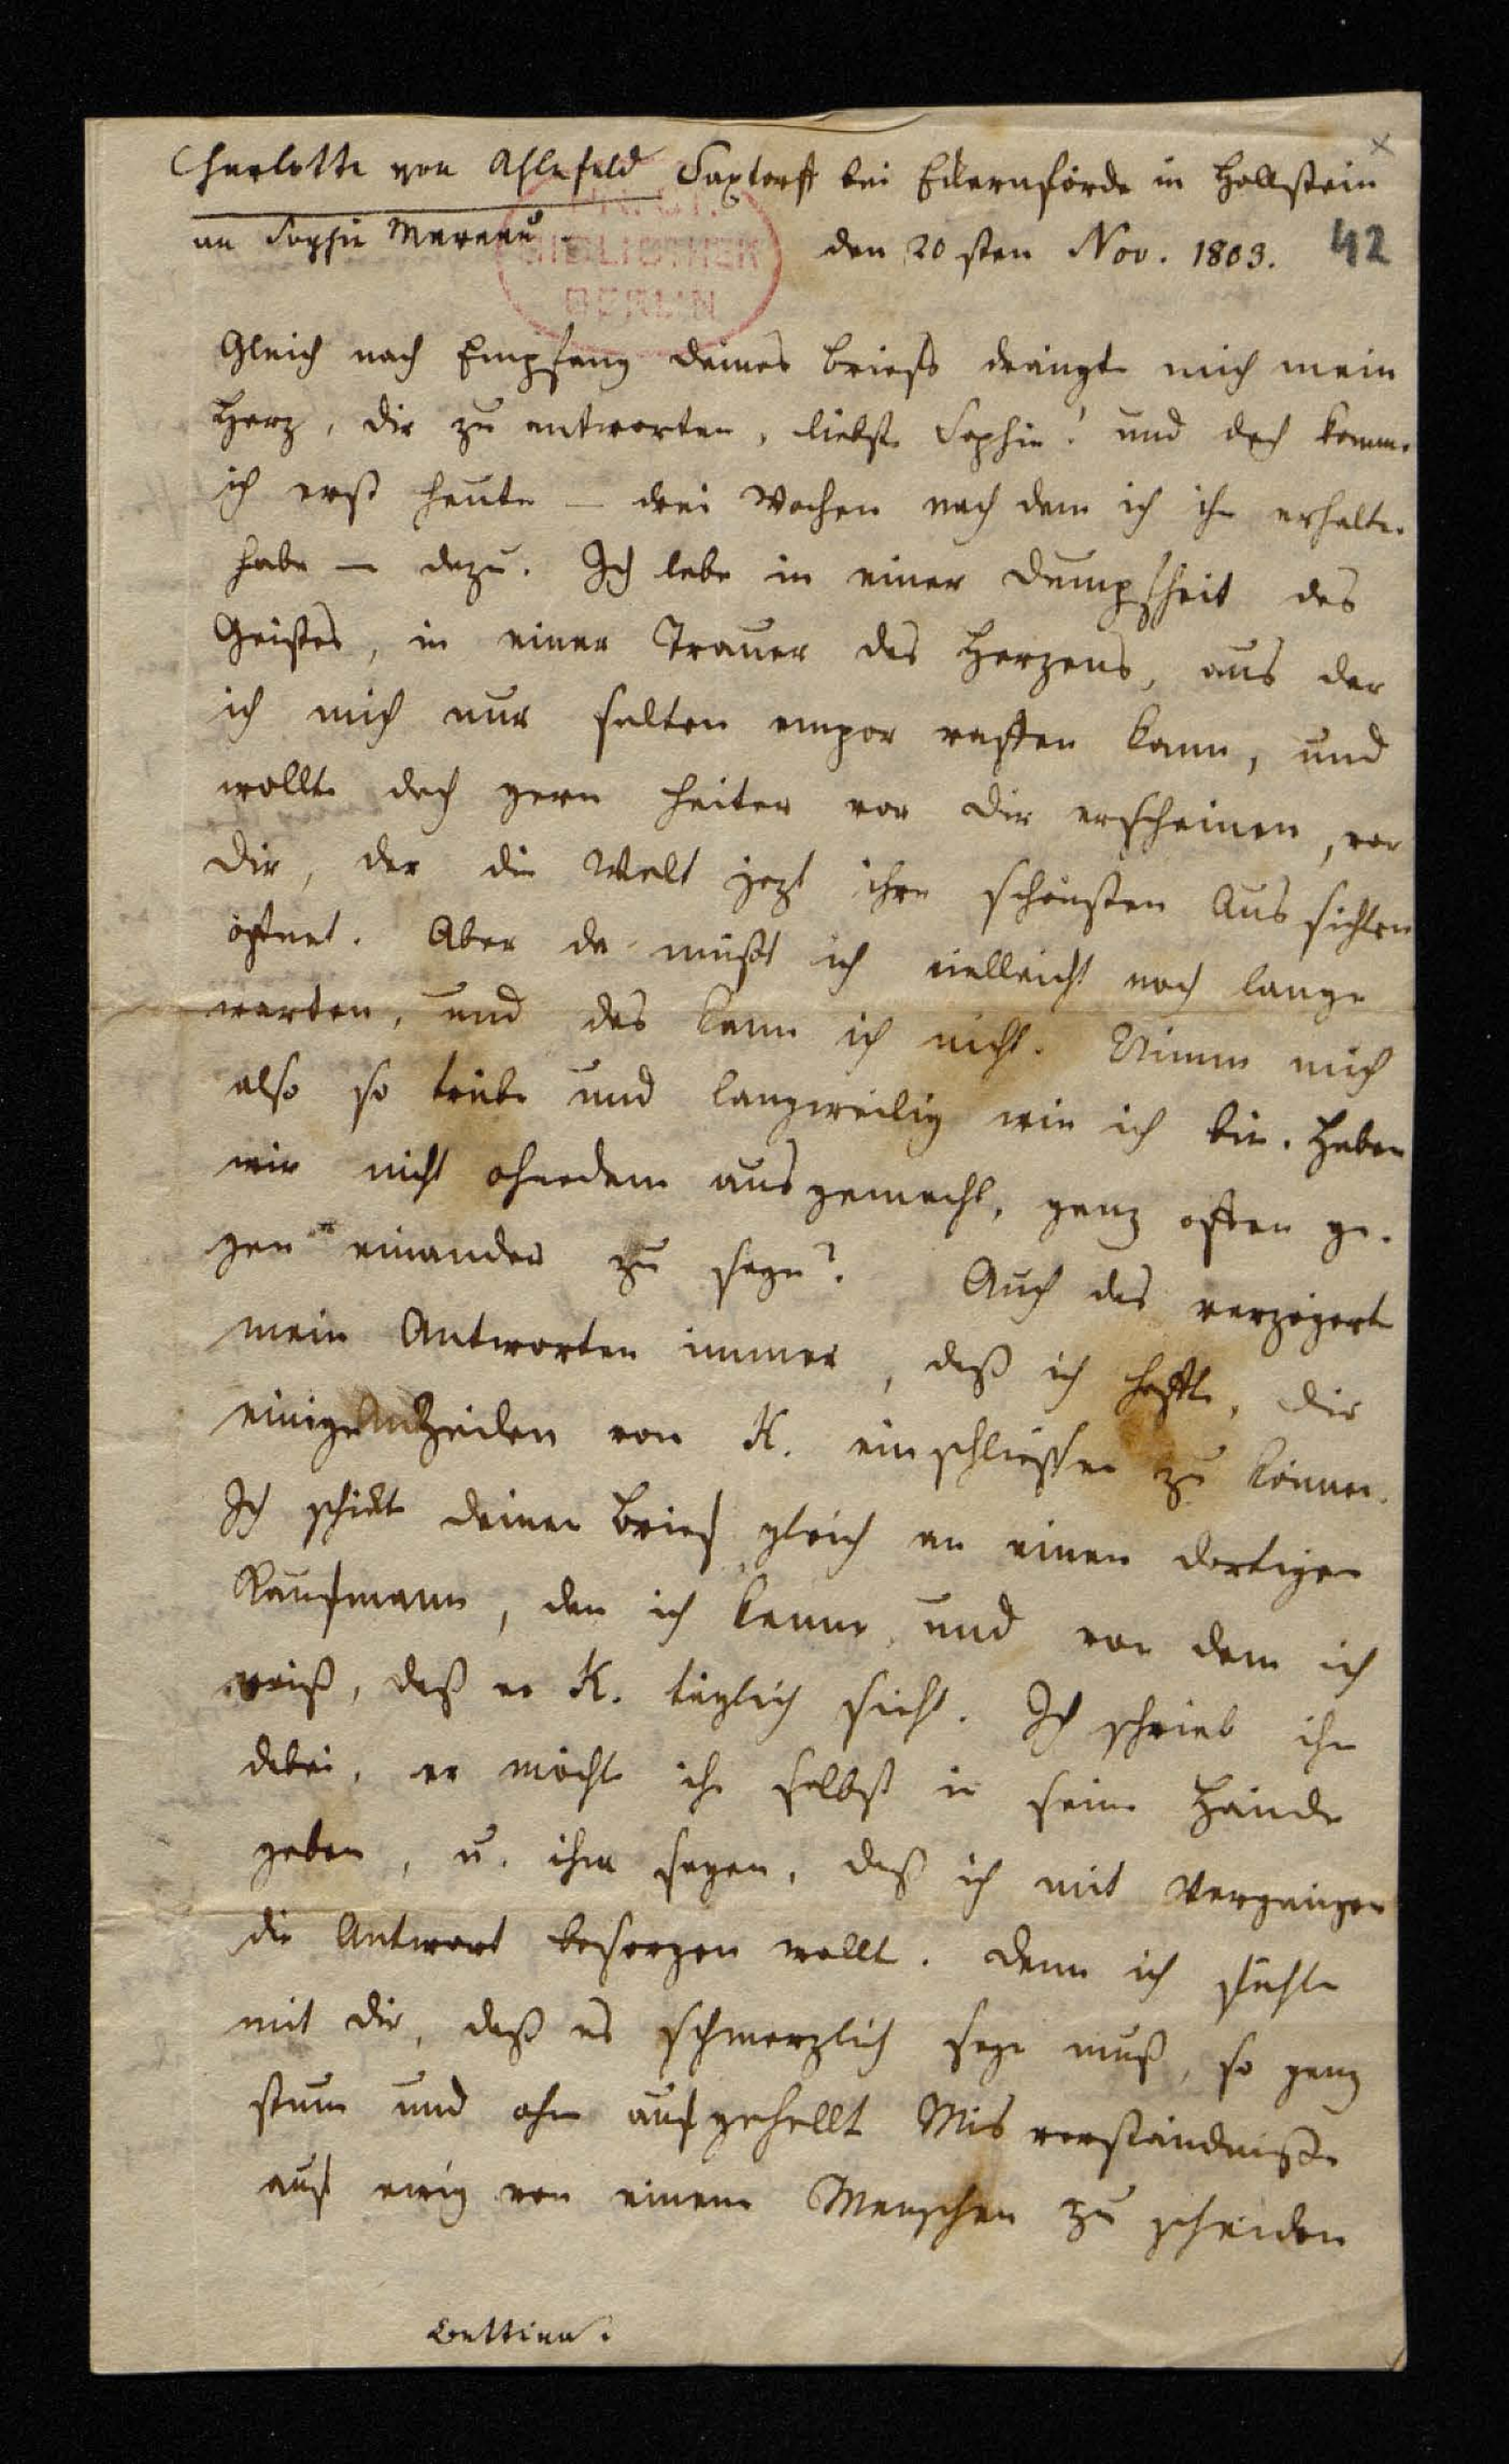 Charlotte von Ahlefeld Saxtorff bei Eckernförde in Hollstein
an Sophie Mereau.
den 20sten Nov. 1803. 42
BIBLIOTHEK
BERLIN
Gleich nach Empfang deines Briefs drängte mich mein
Herz, dir zu antworten, liebste Sophie! und doch komme
ich erst heute – drei Wochen nach dem ich ihn erhalten
habe – dazu. Ich lebe in einer Dumpfheit des
Geistes, in einer Trauer des Herzens, aus der
ich mich nur selten empor raffen kann, und
wollte doch gern heiter vor dir erscheinen, vor
dir, der die Welt jezt ihre schönsten Aussichten
öffnet. Aber da müßt ich vielleicht noch lange
warten, und das kann ich nicht. Nimm mich
also so trübe und langweilig wie ich bin. Haben
wir nicht ohnedem ausgemacht, ganz offen ge-
gen einander zu seyn? Auch das verzögerte
mein Antworten immer, daß ich hoffte, dir
einige Zeilen von K. einschließen zu können.
Ich schickte deinen Brief gleich an einen dortigen
Kaufmann, den ich kenne, und von dem ich
weiß, daß er K. täglich sieht. Ich schrieb ihm
dabei, er möchte ihn selbst in seine Hände
geben, u. ihm sagen, daß ich mit Vergnügen
die Antwort besorgen wollte. Denn ich fühle
mit dir, daß es schmerzlich seyn muß, so ganz
stumm und ohne aufgehellte Misverständniße
auf ewig von einem Menschen zu scheiden
Bettina.